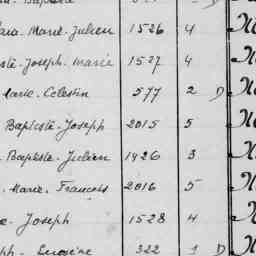 Marie - Julien 1526 4
Joseph - Marie 1527 4
Marie - Célestin 577 2 D
Baptiste - Joseph 2015 5
Baptiste - Julien 1426 3
- Marie - François 2016 5
Joseph 1528 4
Eugène 322 1 D